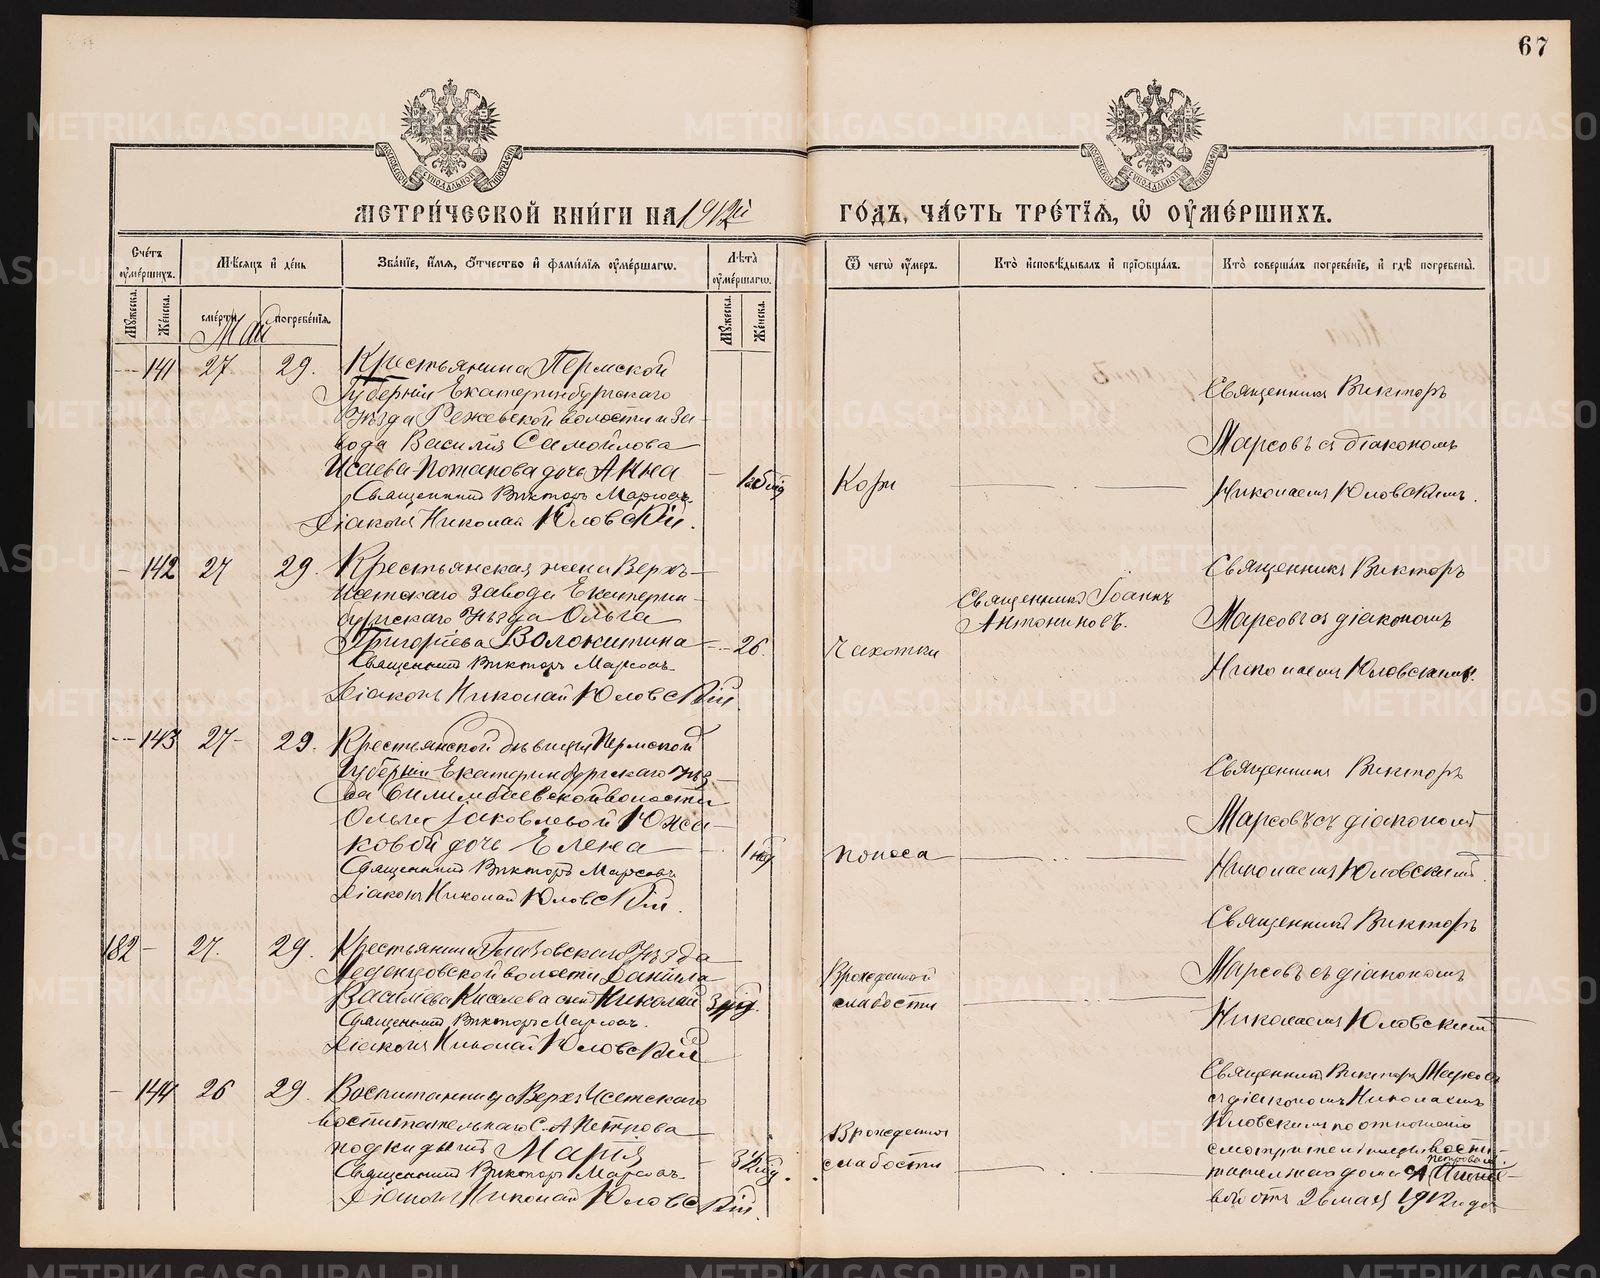 67
МЕТРИ́ЧЕСКОЙ КНИ́ГИ НА 1912й
ГО́ДЪ, ЧА́СТЬ ТРЕ́ТЇѦ, Ѿ ОУМЕ́РШИХЪ.
Сче́тъ оуме́ршихъ.
Мѣ́сяцъ и де́нь
Зва́нїе, и́мѧ, о́тчество и фами́лїѧ оуме́ршагѡ.
Лѣ́та оуме́ршагѡ.
Ѿ чегѡ̀ оу́меръ.
Кто̀ и҆сповѣ́дывалъ и прїѡбща́лъ.
Кто̀ соверша́лъ погребе́нїе, и гдѣ̀ погребены̀.
Му́жеска.
Же́нска.
сме́рти
погребе́нїѧ.
Му́жеска.
Же́нска.
Май
141 27 29. Крестьянина Пермской
Губернiи Екатеринбургскаго
Уѣзда Режевской волости и За-
вода Василiя Самойлова
Исаева-Потапова дочь Анна
Священникъ Викторъ Марсовъ.
Дiаконъ Николай Юловскiй.
Кори
Священникъ Викторъ
Марсовъ съ дiакономъ
Николаемъ Юловскимъ.
142 27 29. Крестьянская жена Верхъ-
Исетскаго завода Екатерин-
бургскаго Уѣзда Ольга
Григорiева Волокитина
26.
Священникъ Викторъ Марсовъ
Дiаконъ Николай Юловскiй
Чахотки
Священникъ Iоаннъ
Антониновъ.
Священникъ Викторъ
Марсовъ съ дiакономъ
Николаемъ Юловскимъ.
143 27 29. Крестьянской дѣвицы Пермской
Губернiи Екатеринбургскаго Уѣз-
да Билимбаевской волости
Ольги Iаковлевой Южа-
ковой дочь Елена
Священникъ Викторъ Марсовъ
Дiаконъ Николай Юловскiй.
поноса
Священникъ Викторъ
Марсовъ съ дiакономъ
Николаемъ Юловскимъ.
182 27. 29. Крестьянина Глазовскаго Уѣзда
волости Данiила
Васильева Киселева сынъ Николай
Священникъ Викторъ Марсовъ.
Дiаконъ Николай Юловскiй
Врожденной
слабости
Священникъ Викторъ
Марсовъ съ дiакономъ
Николаемъ Юловскимъ
144 26 29. Воспитанница Верхъ Исетскаго
воспитательнаго С. А Петрова
подкидышъ Марiя
Священникъ Викторъ Марсовъ.
Дiаконъ Николай Юловскiй.
Врожденная
слабости
Священникъ Викторъ Марсовъ
съ дiакономъ Николаемъ
Юловскимъ по отношенiю
воспи-
тательнаго дома
вой отъ 26 мая 1912 года
METRIKI.GASO-URAL.RU